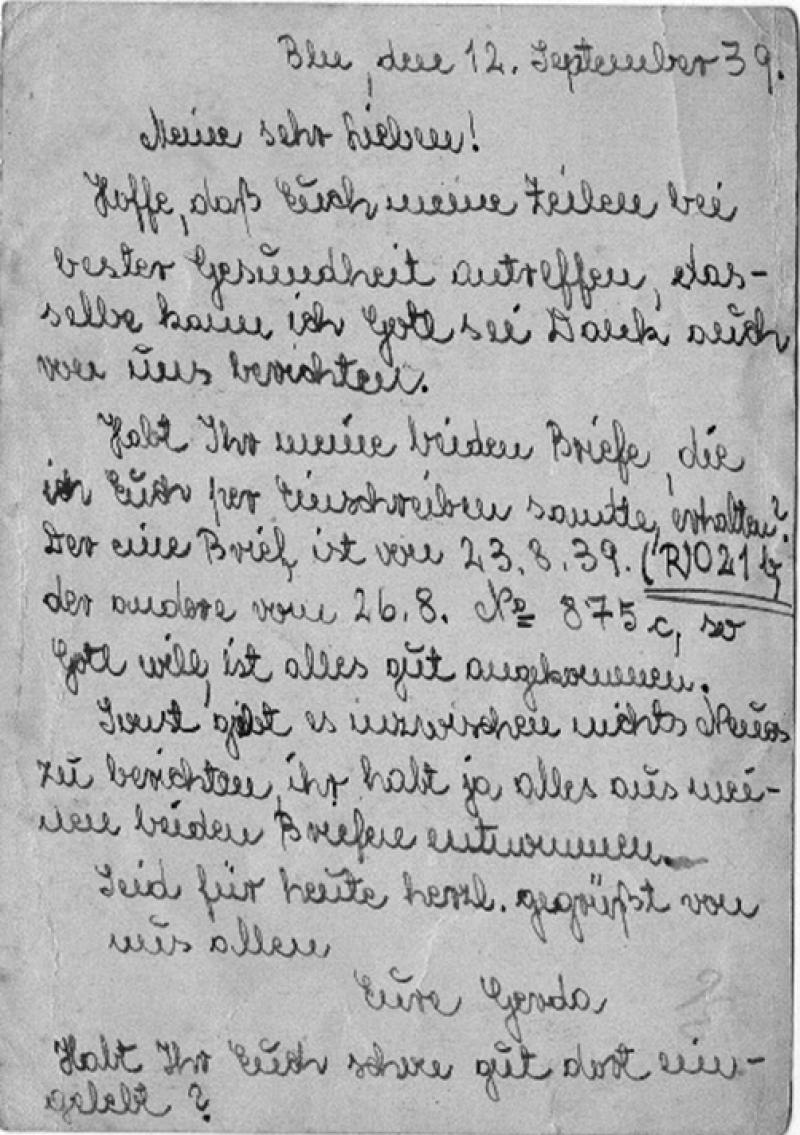 Bln, den 12. September 39.
Meine sehr Lieben!
Hoffe, daß Euch meine Zeilen bei
bester Gesundheit antreffen, das-
selbe kann ich Gott sei Dank auch
von uns berichten.
Habt Ihr meine beiden Briefe, die
ich Euch per Einschreiben sandte, erhalten?
Der eine Brief ist vom 23.8.39. (R) 021 b,
der andere vom 26.8. No 875 c, so
Gott will, ist alles gut angekommen.
Sonst gibt es inzwischen nichts Neues
zu berichten, ihr habt ja alles aus mei-
nen beiden Briefen entnommen.
Seid für heute herzl. gegrüßt von
uns allen
Eure Gerda
Habt Ihr Euch schon gut dort ein-
gelebt?